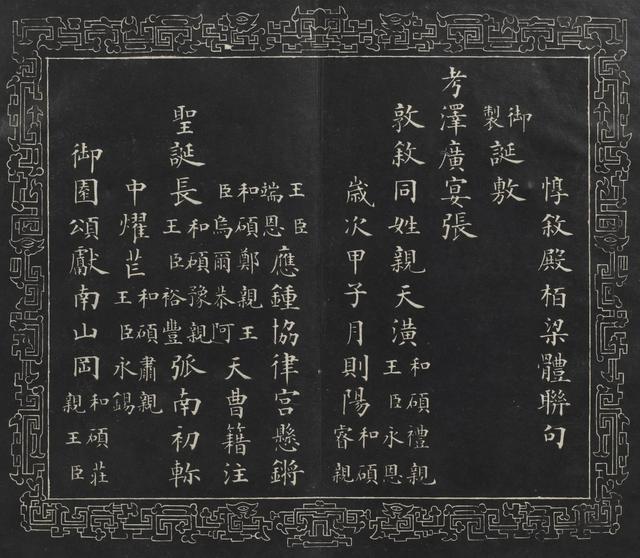 惇敘殿栢梁體聯句
御製誕敷
考澤廣宴張
敦敘同姓親天潢和碩禮親王臣永恩
歲次甲子月則陽和碩睿親
王臣端恩應鍾協律宮懸鏘
和碩鄭親王臣烏爾恭阿天曹籍注
聖誕長和碩豫親王臣裕豐弧南初軫
中燿芒和碩肅親王臣永錫
御園頌獻南山岡和碩莊親王臣